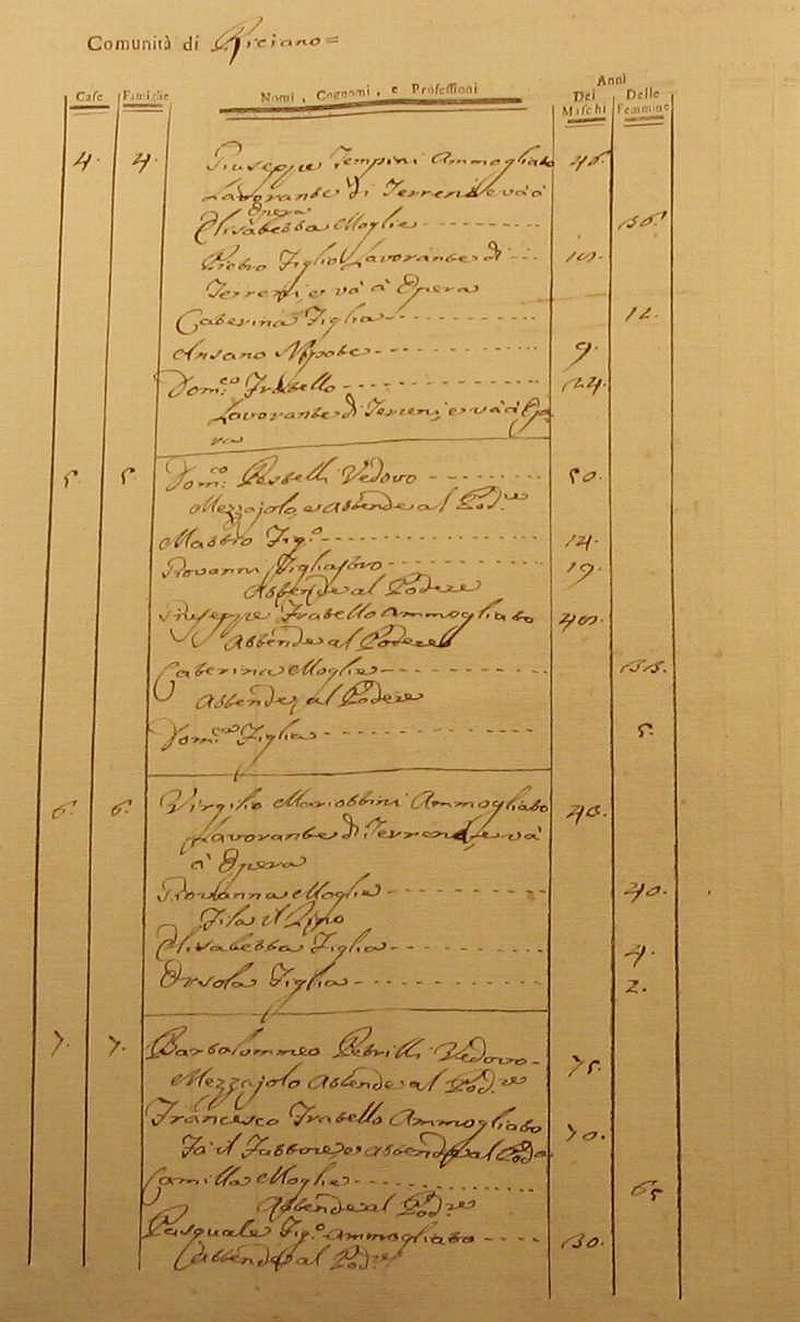 Comunità di Riciano =
Case Famiglie Nomi, Cognomi, e Professioni Anni Dei Maschi Delle Femmine
4. 4. Giuseppe Tempini Ammogliato 45.
Lavorante di Terreni e và à
Opera
Elisabetta Moglie 36.
Pietro Figlio Lavorante di 10.
Terreni e và à Opera
Caterina Figlia 12.
Ansano Nipote 9.
Dom.co Fratello 24.
Lavorante di Terreni e và à Ope
ra
5. 5. Dom.co Vedovo 50.
Mezzajolo e Attende al Pod.re
Matteo Fig.o 14.
Giovanni Figliastro 19.
Attende al Podere
Giuseppe Fratello Ammogliato 40.
Attende al Podere
Caterina Moglie 33.
Attende al Podere
Dom.ca Figlia 5.
6. 6. Virgilio Mariottini Ammogliato 40.
Lavorante di Terreni e và
à Opera
Giovanna Moglie 40.
Fila il Lino
Elisabetta Figlia 4.
Orsola Figlia 2.
7. 7. Bartolommeo Petrilli Vedovo 75.
Mezzajolo Attende al Pod.re
Francesco Fratello Ammogliato 70.
Fà il Fattore e attende al Pod.e
Camilla Moglie 65
Attende al Pod.re
Pasquale Fig.o Ammogliato 30.
Attende al Pod.re